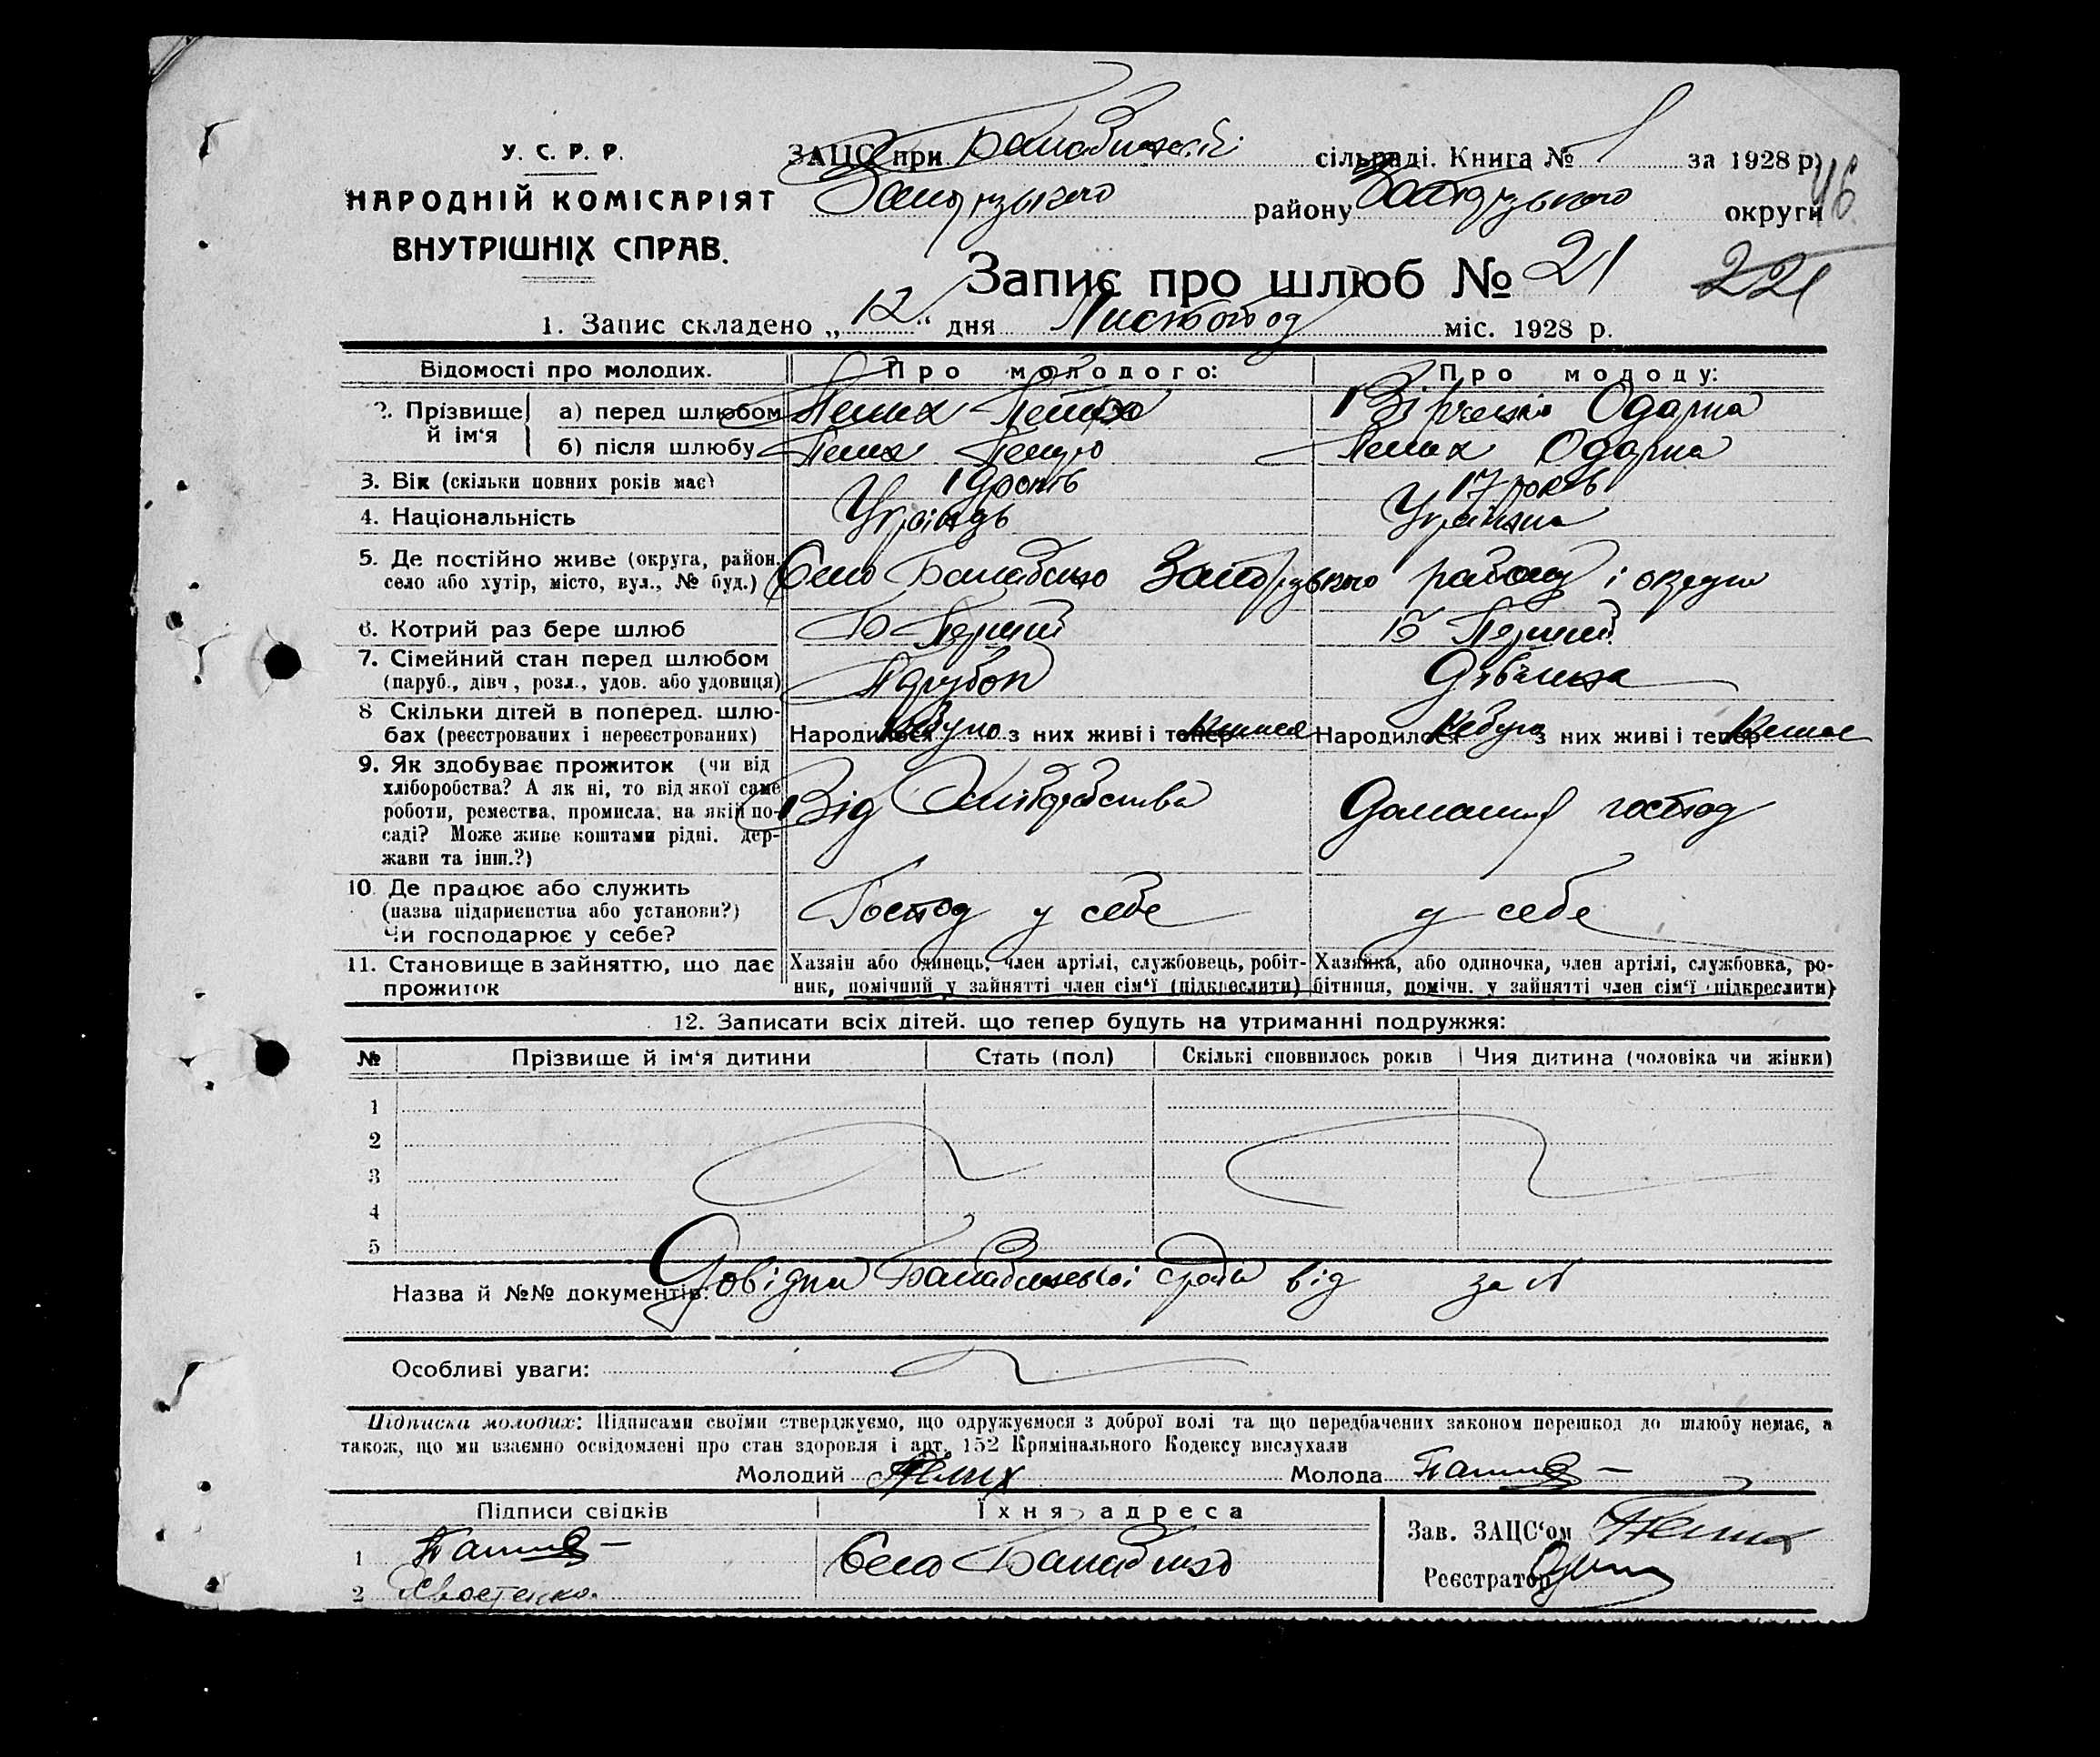 У. С. Р. Р.
НАРОДНІЙ КОМІСАРІЯТ
ВНУТРІШНІХ СПРАВ.
ЗАЦС при Балабинській сільраді. Книга № 1 за 1928 р.
46
Запорузького району Запорузького округи
Запис про шлюб № 21
221
1. Запис складено „12“ дня Листопад міс. 1928 р.
Відомості про молодих. Про молодого: Про молоду:
2. Прізвище й ім‘я
а) перед шлюбом Пелих Петро Одарка
б) після шлюбу Пелих Петро Пелих Одарка
3. Вік (скільки повних років має) 19 років 17 років
4. Національність Українць Українка
5. Де постійно живе (округа, район,
село або хутір, місто, вул., № буд.) Село Балабино Запорузького району і округи
6. Котрий раз бере шлюб Перший Перший
7. Сімейний стан перед шлюбом
(паруб., дівч., розл., удов. або удовиця) Парубок Дівчина
8 Скільки дітей в поперед. шлю-
бах (реєстрованих і нереєстрованих) Народилося небуло з них живі і тепер немає Народилося небуло з них живі і тепер немає
9. Як здобуває прожиток (чи від
хліборобства? А як ні, то від якої саме
роботи, ремества, промисла, на якій по-
саді? Може живе коштами рідні, дер-
жави та інш.?)
Від Хліборобства Домашнє господ
10. Де працює або служить
(назва підприєнства або установи?)
Чи господарює у себе?
Господ у себе у себе
11. Становище в зайняттю, що дає
прожиток
Хазяін або одинець, член артілі, службовець, робіт-
ник, помічний у зайнятті член сім‘ї (підкреслити)
Хазяйка, або одиночка, член артілі, службовка, ро-
бітниця, помічн. у зайнятті член сім‘ї (підкреслити)
12. Записати всіх дітей, що тепер будуть на утриманні подружжя:
№ Прізвище й ім‘я дитини Стать (пол) Скількі сповнилось років Чия дитина (чоловіка чи жінки)
1
2
3
4
5
Назва й №№ документів: Довідка Балабинської с/ради від за №
Особливі уваги:
Підписка молодих: Підписами своїми стверджуємо, що одружуємося з доброї волі та що передбачених законом перешкод до шлюбу немає, а
також, що ми взаємно освідомлені про стан здоровля і арт. 152 Кримінального Кодексу вислухали
Молодий Пелих Молода
Підписи свідків Їхня адреса
1 Село Балабино
2 Хвостенко.
Зав. ЗАЦС‘ом
Реєстратор